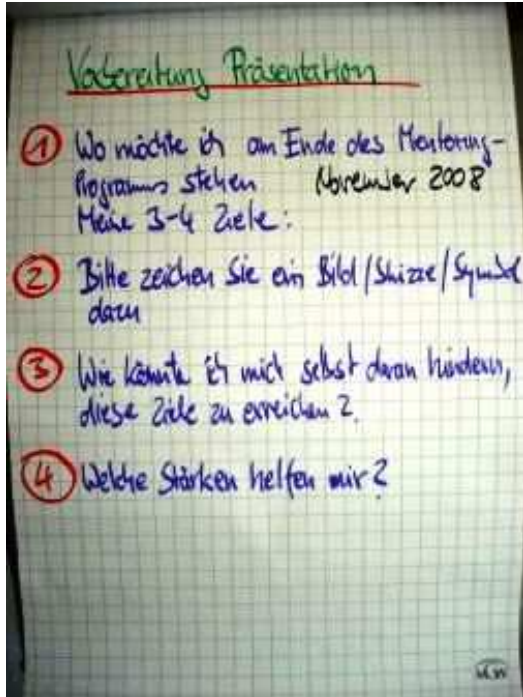 Vorbereitung Präsentation
1 Wo möchte ich am Ende des Mentoring-
Programms stehen November 2008
Meine 3-4 Ziele:
2 Bitte zeichen Sie ein Bild/Skizze/Symbol
dazu
3 Wie könnte ich mich selbst daran hindern,
diese Ziele zu erreichen?
4 Welche Stärken helfen mir?